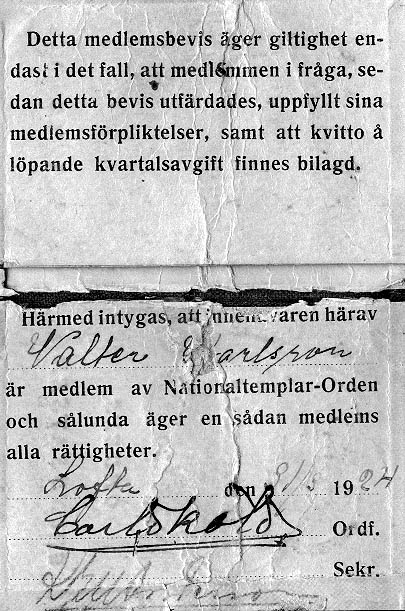 Detta medlemsbevis äger giltighet en-
dast i det fall, att medlemmen i fråga, se-
dan detta bevis utfärdades, uppfyllt sina
medlemsförpliktelser, samt att kvitto å
löpande kvartalsavgift finnes bilagd.
Härmed intygas, att innehavaren härav
Valter Karlsson
är medlem av Nationaltemplar-Orden
och sålunda äger en sådan medlems
alla rättigheter.
Lofta den 1924
Carl Sköld Ordf.
Sekr.